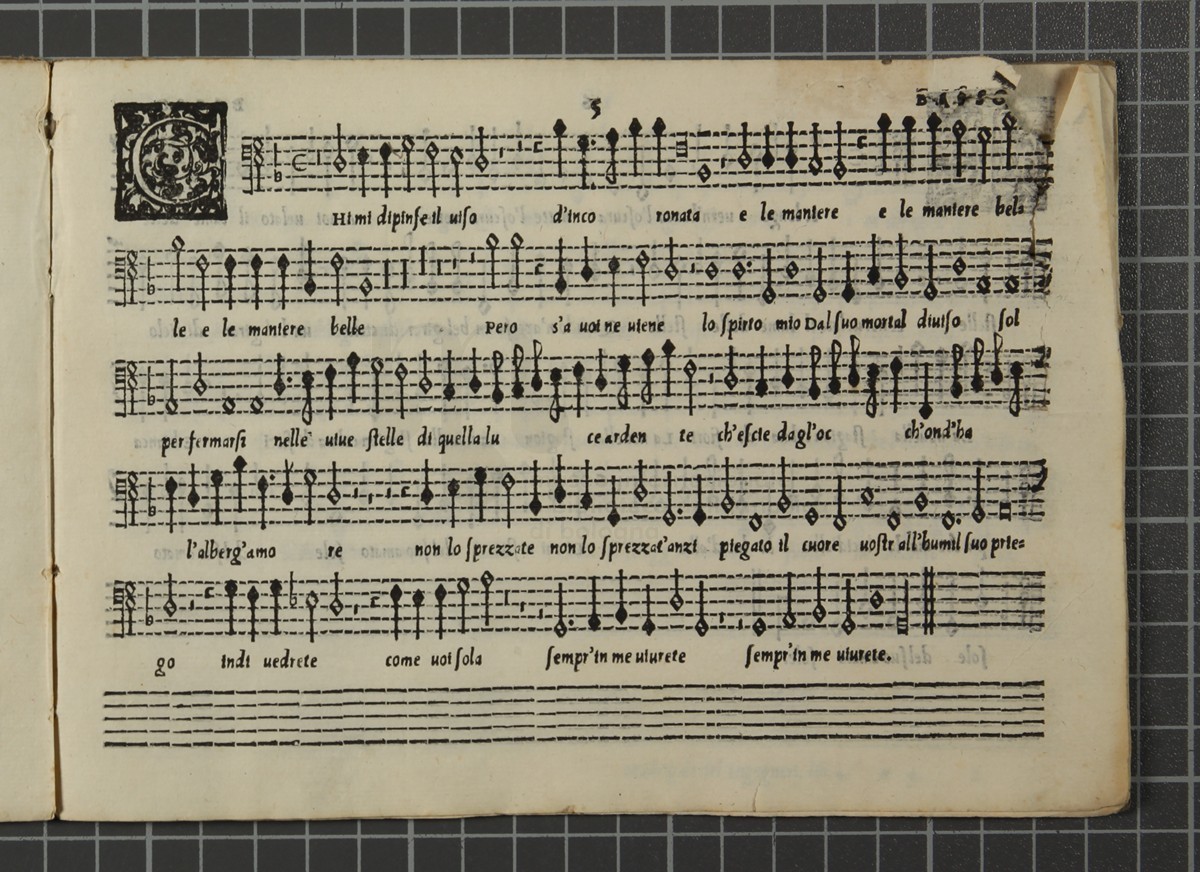 5
BASSO
C Hi mi dipinse il uiso d'inco ronata e le maniere e le maniere bel=
le e le maniere belle Pero s'a uoi ne uiene lo spirto mio Dal suo mortal diuiso sol
per fermarsi nelle uiue stelle di quella lu ce arden te ch'escie da gl'oc ch'ond'ha
l'alberg'amo re non lo sprezzate non lo sprezzat'anzi piegato il cuore uostr'all'humil suo prie=
go indi uedrete come uoi sola sempr'in me uiurete sempr'in me uiurete.